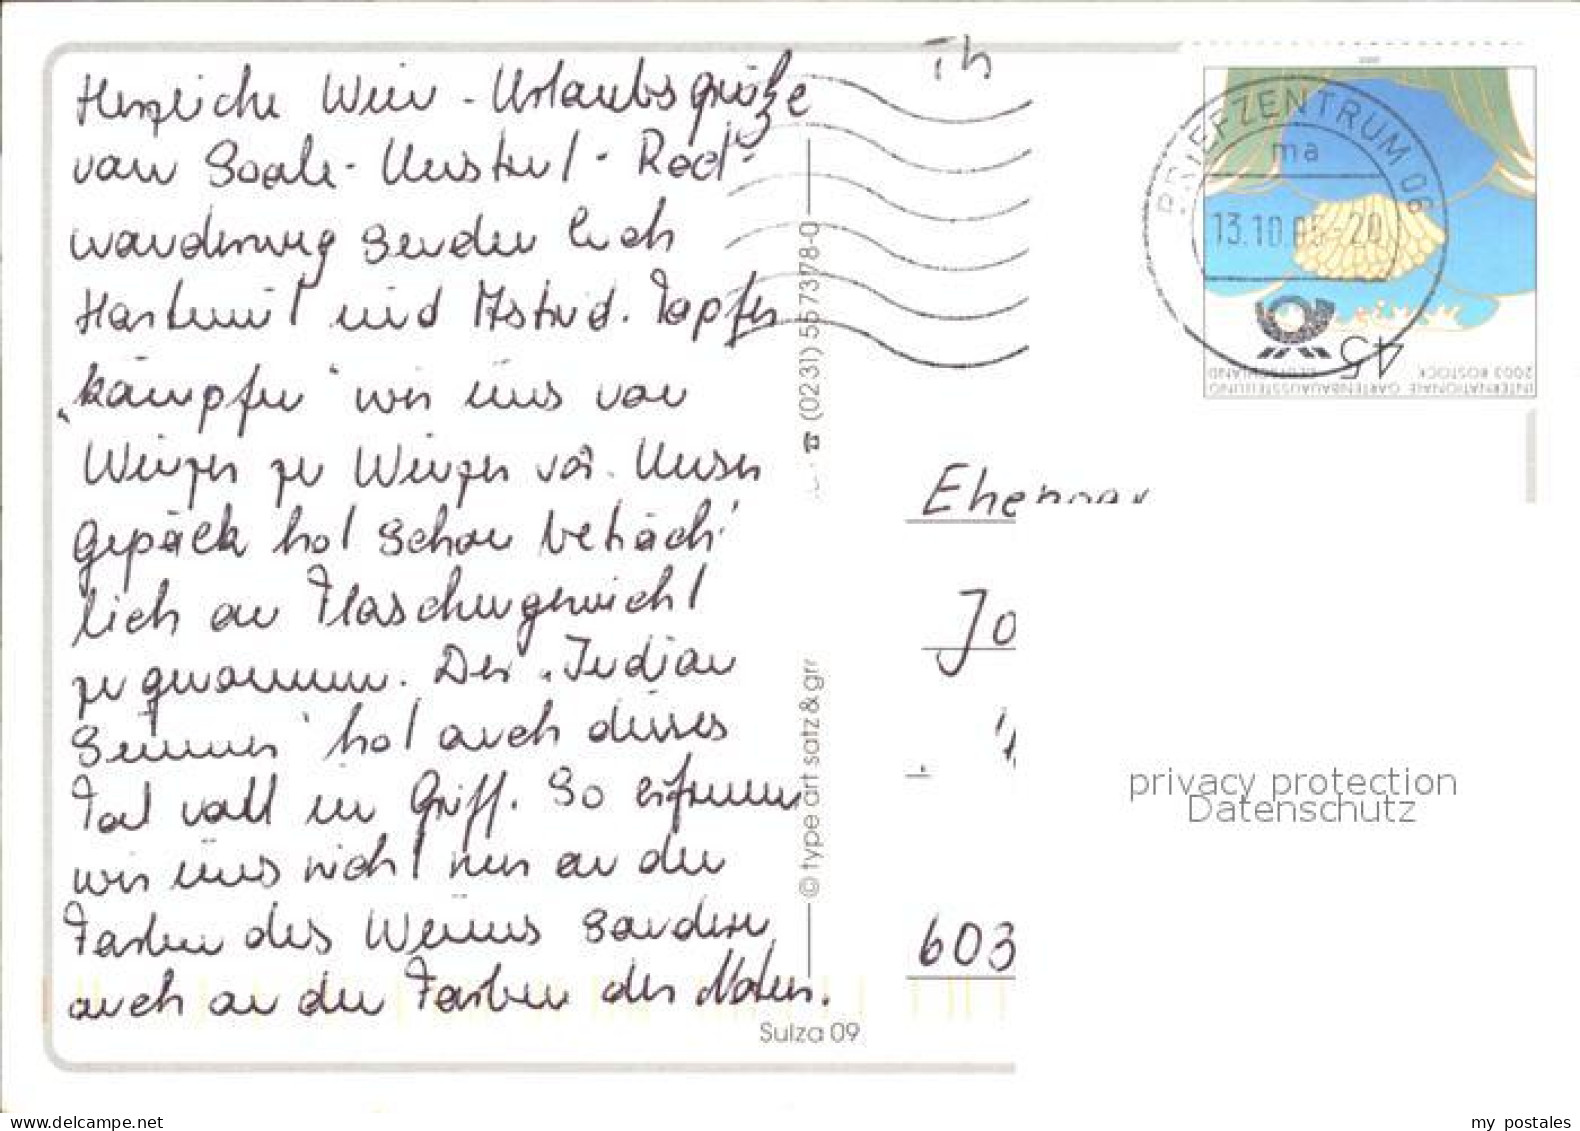 Th
Herzliche Wein-Urlaubsgrüße
vom Saale-Unstrut-Rad-
wanderweg senden Euch
Hartmut und Astrid. Tapfer
"kämpfen" wir uns von
Winzer zu Winzer vor. Unser
Gepäck hat schon beträcht-
lich an Flaschengewicht
zugenommen. Der "Indian
Summer" hat auch dieses
Tal voll im Griff. So erfreuen
wir uns nicht nur an den
Farben des Weines sondern
auch an den Farben der Natur.
© type art satz & gr
☎ (0231) 557378-0
Sulza 09
BRIEFZENTRUM 06
ma
13.10.05-20
45
INTERNATIONALE GARTENBAUAUSSTELLUNG
2003 ROSTOCK
DEUTSCHLAND
Jo
603
privacy protection
Datenschutz
my postales
www.delcampe.net